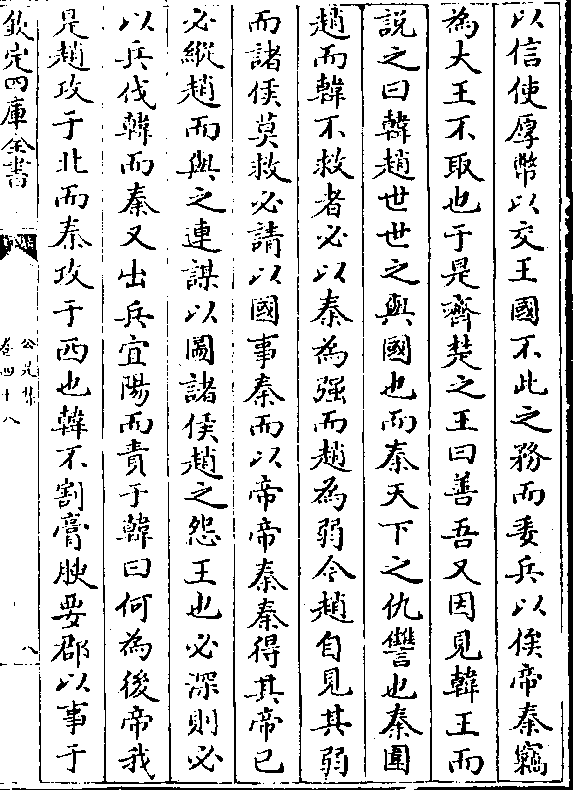 以信使厚幣以交王國不此之務而委兵以俟帝秦竊
為大王不取也于是齊楚之王曰善吾又因見韓王而
説之曰韓趙世世之與國也而秦天下之仇讐也秦圍
趙而韓不救者必以秦為强而趙為弱令趙自見其弱
而諸侯莫救必請以國事秦而以帝帝秦秦得其帝已
必縱趙而與之連謀以圖諸侯趙之怨王也必深則必
以兵伐韓而秦又出兵宜陽而責于韓曰何為後帝我
是趙攻于北而秦攻于西也韓不割膏腴要郡以事于
欽定四庫全書
公是集
卷四十八
八